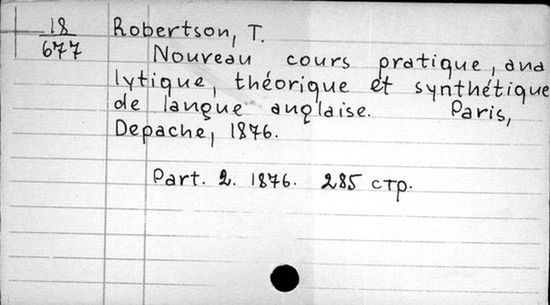 18
677
Robertson, T.
Nouveau cours pratique, ana
lytique, théorique et synthétique
de langue anglaise. Paris,
Depache, 1876.
Part. 2. 1876. 285 стр.